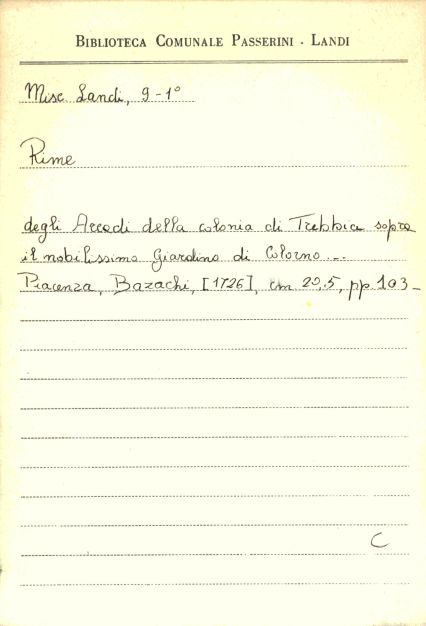 BIBLIOTECA COMUNALE PASSERINI - LANDI
Misc. Landi, 9-1°
Rime
degli Arcadi della colonia di Trebbia sopra
il nobilissimo Giardino di Colorno...
Piacenza, Bazachi, [1726], cm 20,5, pp. 103-
C